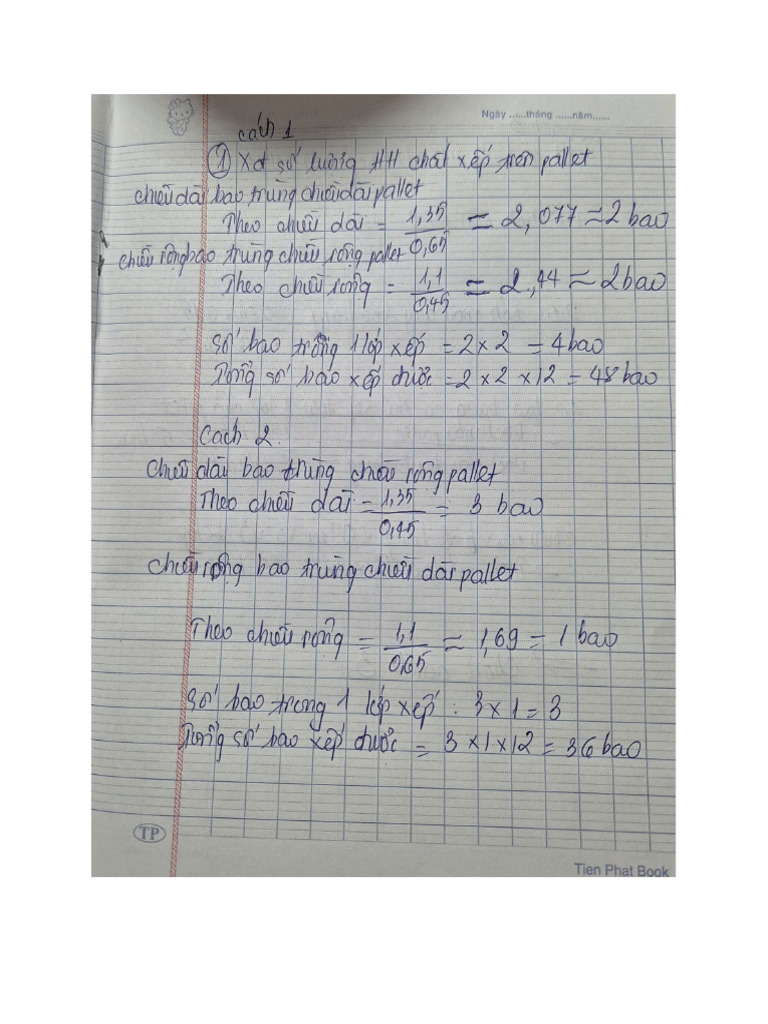 Ngày ......tháng ......năm......
Cách 1
① Xđ số lượng HH chất xếp trên pallet
chiều dài bao trùng chiều dài pallet
Theo chiều dài = 1,35 / 0,65 = 2,077 ≈ 2 bao
chiều rộng bao trùng chiều rộng pallet
Theo chiều rộng = 1,1 / 0,45 = 2,44 ≈ 2 bao
Số bao trong 1 lớp xếp = 2 x 2 = 4 bao
Tổng số bao xếp được = 2 x 2 x 12 = 48 bao
Cách 2.
Chiều dài bao trùng chiều rộng pallet
Theo chiều dài = 1,35 / 0,45 = 3 bao
Chiều rộng bao trùng chiều dài pallet
Theo chiều rộng = 1,1 / 0,65 ≈ 1,69 = 1 bao
Số bao trong 1 lớp xếp : 3 x 1 = 3
Tổng số bao xếp được = 3 x 1 x 12 = 36 bao
TP
Tien Phat Book